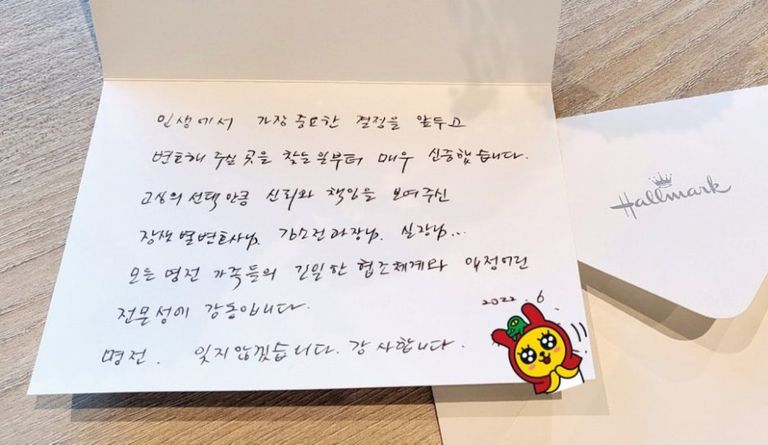 인생에서 가장 중요한 결정을 앞두고
변호해 주실 곳을 찾는 일부터 매우 신중했습니다.
고심의 선택만큼 신뢰와 책임을 보여주신
장샛별변호사님, 김소전과장님, 실장님...
모든 명전 가족들의 긴밀한 협조체계와 애정어린
전문성에 감동입니다.
2022. 6
명전. 잊지않겠습니다. 감사합니다.
Hallmark